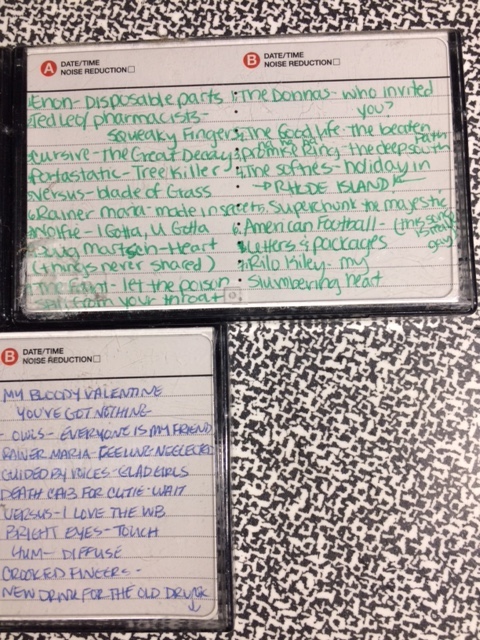 A DATE/TIME
NOISE REDUCTION
Enon- Disposable parts
Ted leo/pharmacists-
Squeaky Fingers
cursive- The Great Decay
Portastatic- Tree Killer
Versus- blade of Grass
Rainer maria- made in secret
Wolfie- I Gotta, U Gotta
Doug Martsch- Heart
(things never shared)
The Faint- let the poison
spill from your throat
B DATE/TIME
NOISE REDUCTION
The Donnas- who invited
you?
The Good life- The beaten
path
promise Ring- the deep south
The softies- holiday in
→ RHODE ISLAND ←
Superchunk the majestic
American Football- (this song
is really
gay)
Letters & packages
Rilo Kiley- my
Slumbering heart
B DATE/TIME
NOISE REDUCTION
MY BLOODY VALENTINE
YOU'VE GOT NOTHING
- OWLS- EVERYONE IS MY FRIEND
RAINER MARIA- FEELING NEGLECTED
GUIDED BY VOICES- GLAD GIRLS
DEATH CAB FOR CUTIE- WAIT
VERSUS- I LOVE THE WB
BRIGHT EYES- TOUCH
HUM- DIFFUSE
CROOKED FINGERS-
NEW DRINK FOR THE OLD DRUNK